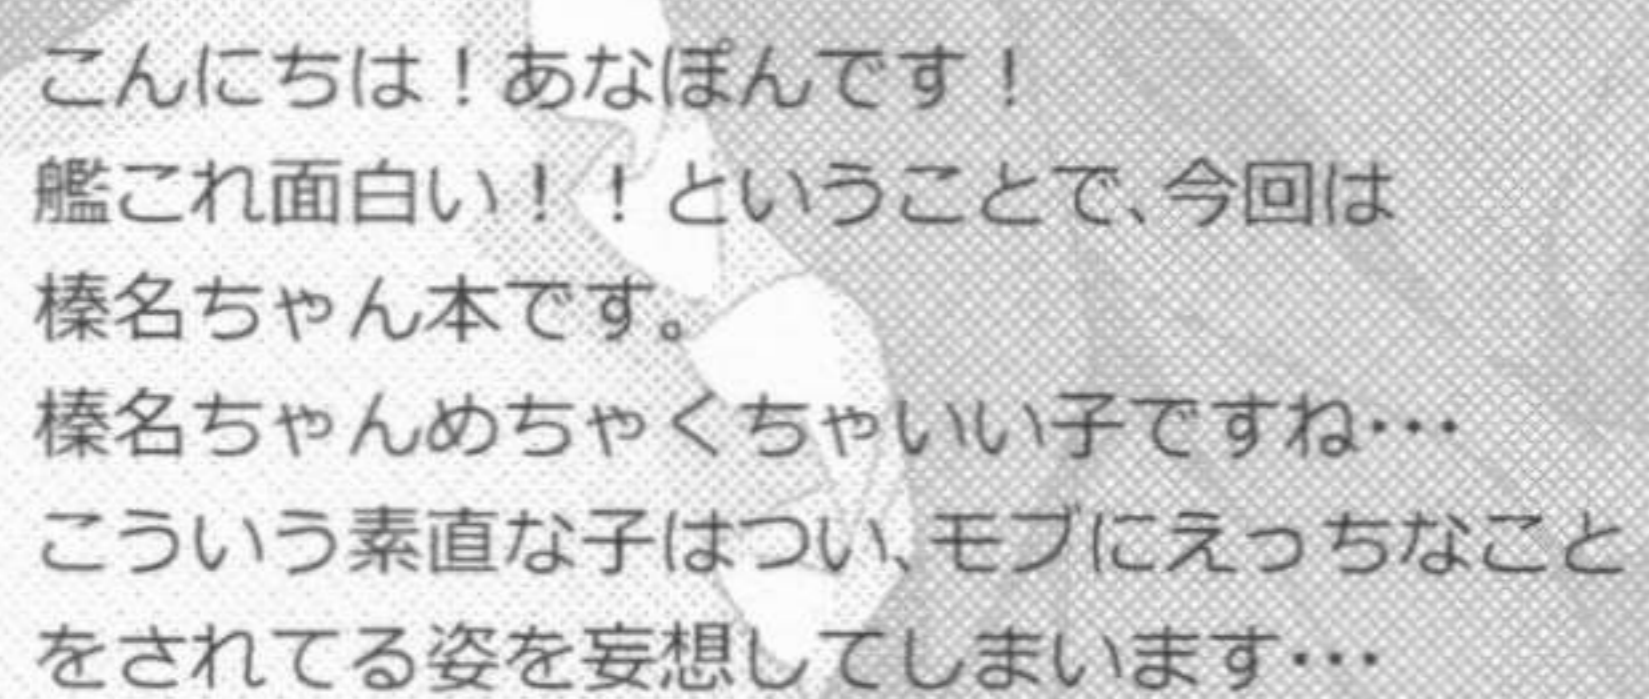 こんにちは！あなぽんです！
艦これ面白い！！ということで、今回は
榛名ちゃん本です。
榛名ちゃんめちゃくちゃいい子ですね…
こういう素直な子はつい、モブにえっちなこと
をされてる姿を妄想してしまいます…